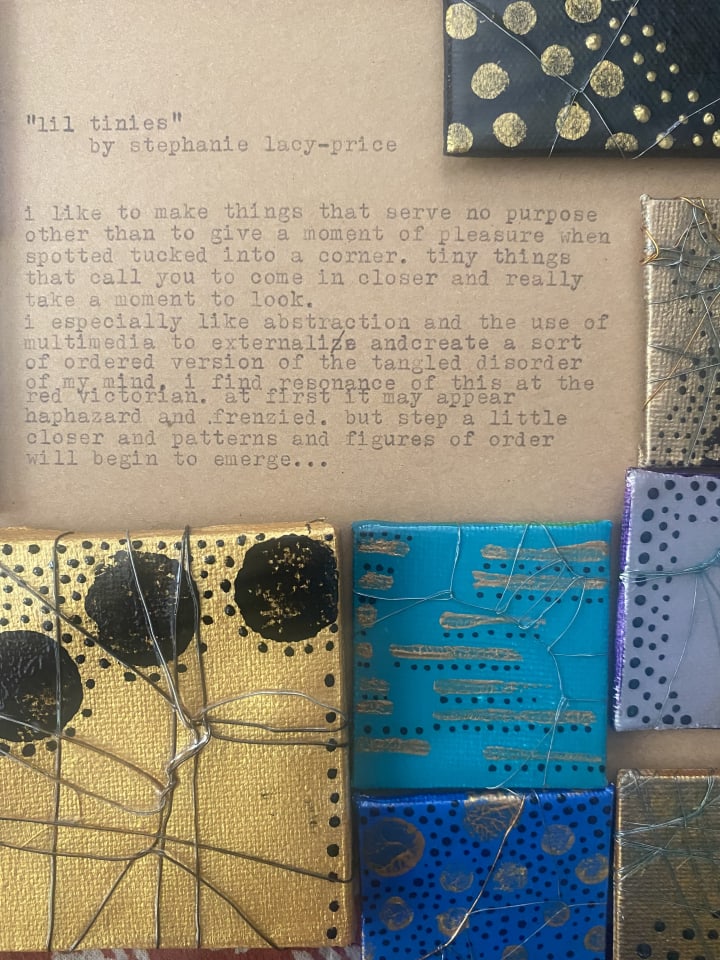 "lil tinies"
by stephanie lacy-price
i like to make things that serve no purpose
other than to give a moment of pleasure when
spotted tucked into a corner. tiny things
that call you to come in closer and really
take a moment to look.
i especially like abstraction and the use of
multimedia to externalize andcreate a sort
of ordered version of the tangled disorder
of my mind. i find resonance of this at the
red victorian. at first it may appear
haphazard and frenzied. but step a little
closer and patterns and figures of order
will begin to emerge...